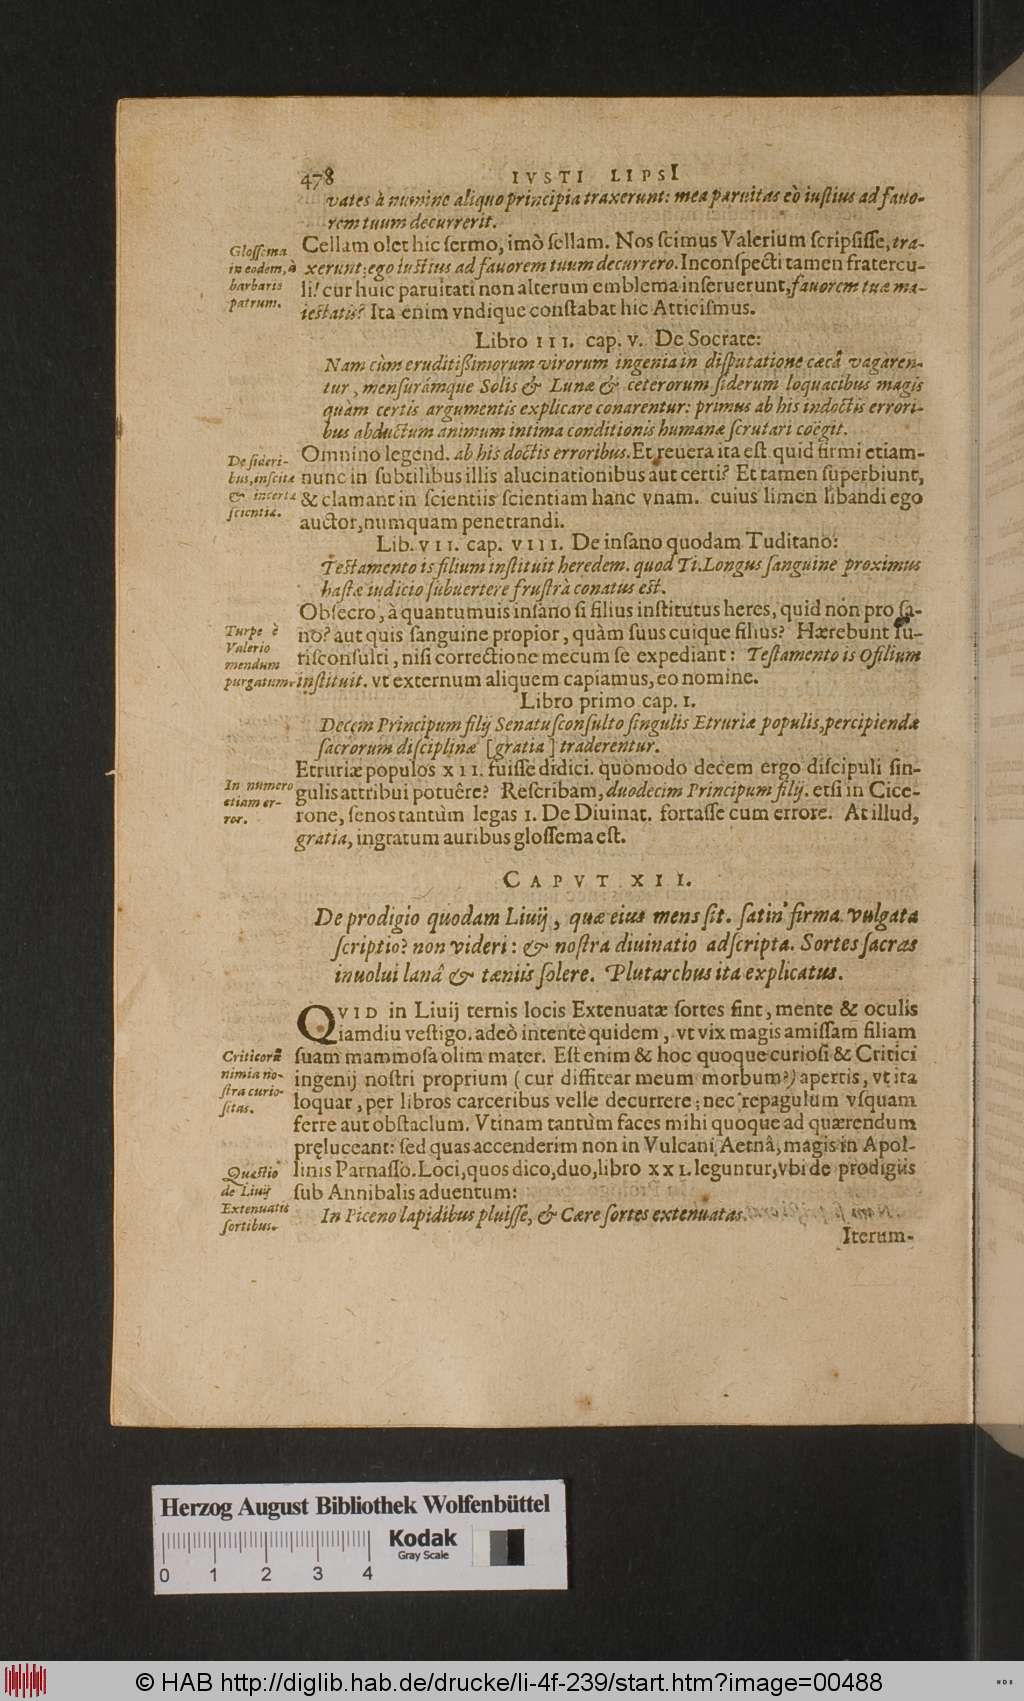 478 IVSTI LIPSI
vates à numine aliquo principia traxerunt: mea paruitas eò iustius ad fauo-
rem tuum decurrerit.
Cellam olet hic sermo, imò sellam. Nos scimus Valerium scripsisse, tra-
xerunt: ego iustius ad fauorem tuum decurrero. Inconspecti tamen fratercu-
li! cur huic paruitati non alterum emblema inseruerunt, fauorem tuæ ma-
iestatis? Ita enim vndique constabat hic Atticismus.
Glossema
in eodem, à
barbaris
patrum.
Libro III. cap. V. De Socrate:
Nam cùm eruditißimorum virorum ingenia in disputatione cæcâ vagaren-
tur, mensurámque Solis & Lunæ & ceterorum siderum loquacibus magis
quàm certis argumentis explicare conarentur: primus ab his indoctis errori-
bus abductum animum intima conditionis humanæ scrutari coëgit.
Omnino legend. ab his doctis erroribus. Et reuera ita est. quid firmi etiam-
nunc in subtilibus illis alucinationibus aut certi? Et tamen superbiunt,
& clamant in scientiis scientiam hanc vnam. cuius limen libandi ego
auctor, numquam penetrandi.
De sideri-
bus, inscita
& incerta
scientia.
Lib. VII. cap. VIII. De insano quodam Tuditano:
Testamento is filium instituit heredem. quod Ti. Longus sanguine proximus
hastæ iudicio subuertere frustrà conatus est.
Obsecro, à quantumuis insano si filius institutus heres, quid non pro sa-
no? aut quis sanguine propior, quàm suus cuique filius? Hærebunt Iu-
risconsulti, nisi correctione mecum se expediant: Testamento is Ofilium
instituit. vt externum aliquem capiamus, eo nomine.
Turpe è
Valerio
mendum
purgatum.
Libro primo cap. I.
Decem Principum filij Senatusconsulto singulis Etruriæ populis, percipiendæ
sacrorum disciplinæ [gratia] traderentur.
Etruriæ populos XII. fuisse didici. quomodo decem ergo discipuli sin-
gulis attribui potuêre? Rescribam, duodecim Principum filij. etsi in Cice-
rone, senos tantùm legas I. De Diuinat. fortasse cum errore. At illud,
gratia, ingratum auribus glossema est.
In numero
etiam er-
ror.
CAPVT XII.
De prodigio quodam Liuij, quæ eius mens sit. satin' firma vulgata
scriptio? non videri: & nostra diuinatio adscripta. Sortes sacras
inuolui lanâ & tæniis solere. Plutarchus ita explicatus.
QVID in Liuij ternis locis Extenuatæ sortes sint, mente & oculis
iamdiu vestigo. adeò intentè quidem, vt vix magis amissam filiam
suam mammosa olim mater. Est enim & hoc quoque curiosi & Critici
ingenij nostri proprium (cur diffitear meum morbum?) apertis, vt ita
loquar, per libros carceribus velle decurrere; nec repagulum vsquam
ferre aut obstaclum. Vtinam tantùm faces mihi quoque ad quærendum
pręluceant: sed quas accenderim non in Vulcani Aetnâ, magis in Apol-
linis Parnasso. Loci, quos dico, duo, libro XXI. leguntur, vbi de prodigiis
sub Annibalis aduentum:
Criticorũ
nimia no-
stra curio-
sitas.
Quæstio
de Liuij
Extenuatis
sortibus.
In Piceno lapidibus pluisse, & Cære sortes extenuatas.
Iterum-
Herzog August Bibliothek Wolfenbüttel
0 1 2 3 4
Kodak
Gray Scale
© HAB http://diglib.hab.de/drucke/li-4f-239/start.htm?image=00488